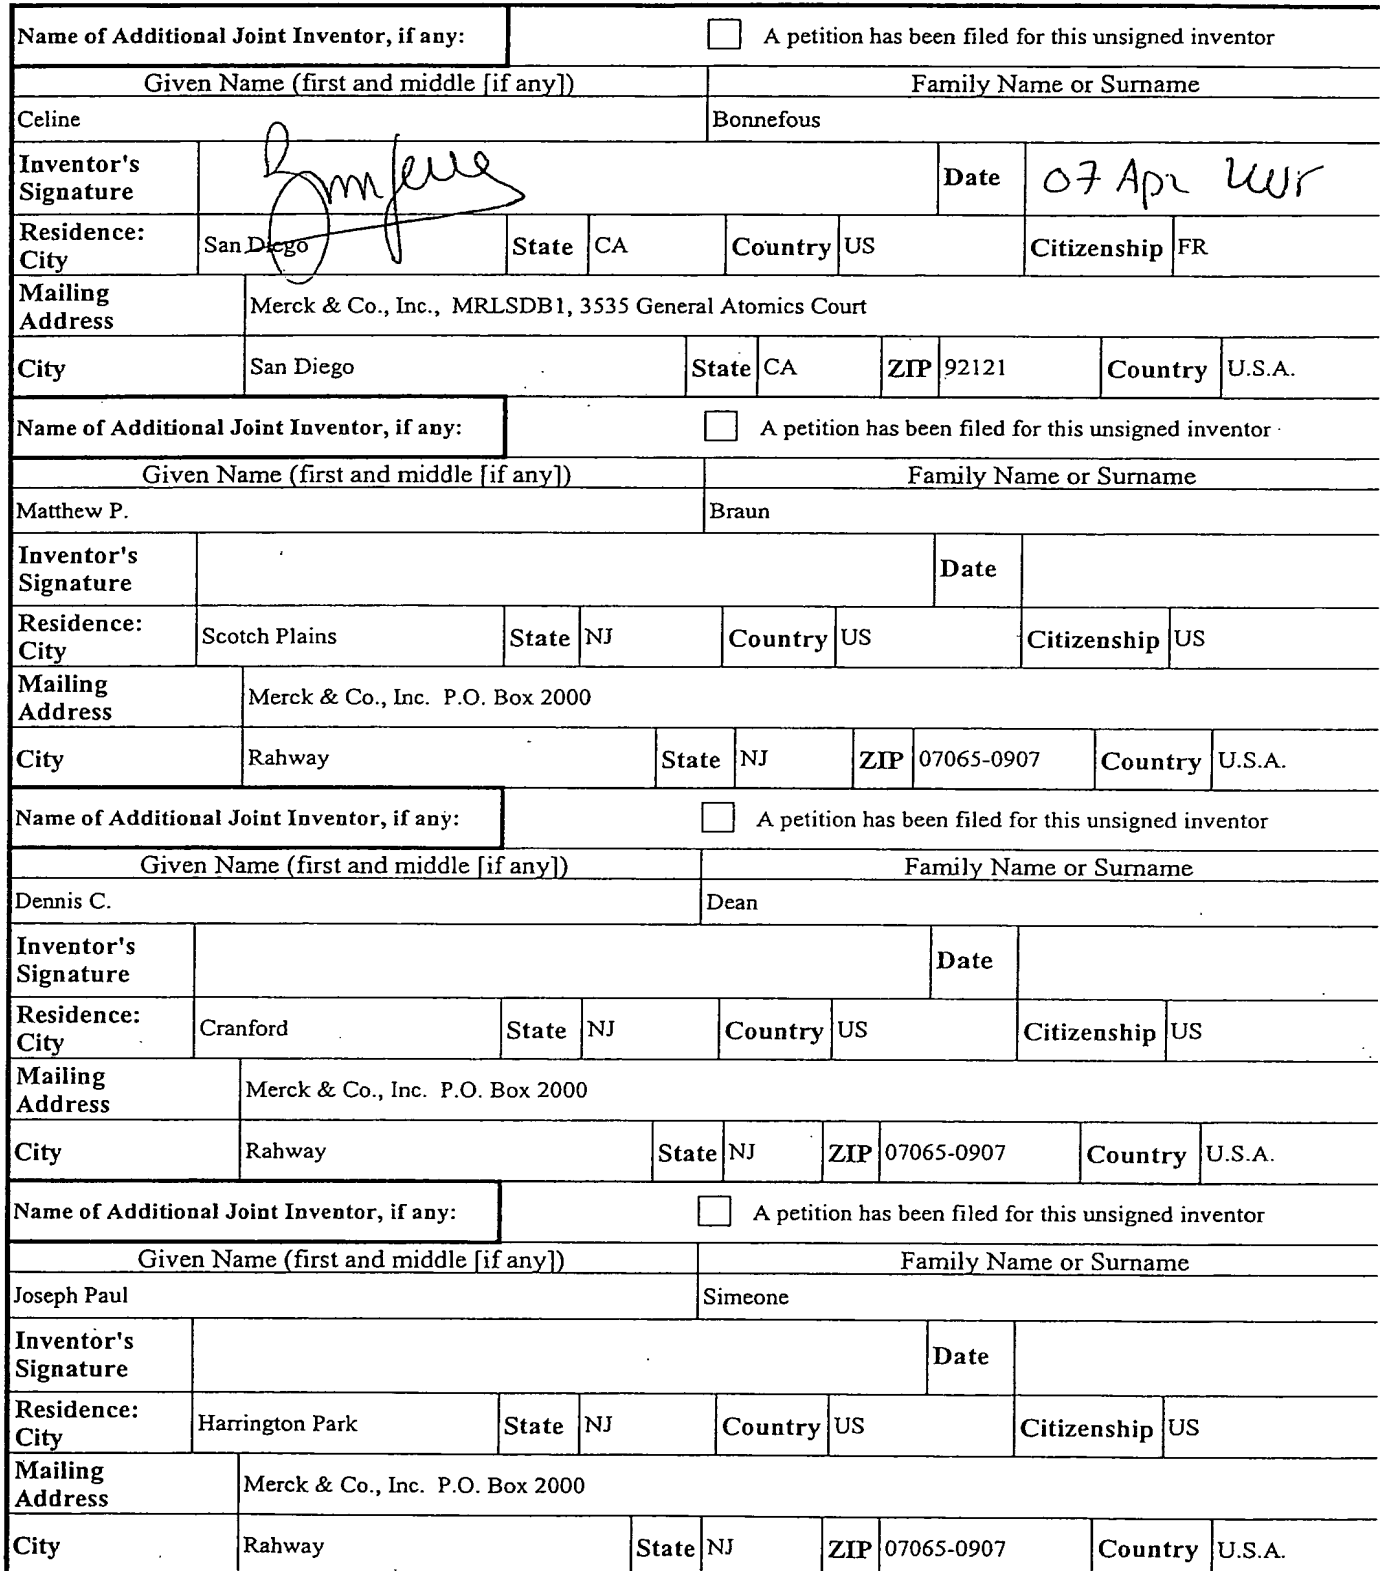 Name of Additional Joint Inventor, if any: A petition has been filed for this unsigned inventor
Given Name (first and middle [if any]) Family Name or Surname
Celine Bonnefous
Inventor's Signature Date 07 Apr
Residence: City San Diego State CA Country US Citizenship FR
Mailing Address Merck & Co., Inc., MRLSDB1, 3535 General Atomics Court
City San Diego State CA ZIP 92121 Country U.S.A.
Name of Additional Joint Inventor, if any: A petition has been filed for this unsigned inventor
Given Name (first and middle [if any]) Family Name or Surname
Matthew P. Braun
Inventor's Signature Date
Residence: City Scotch Plains State NJ Country US Citizenship US
Mailing Address Merck & Co., Inc. P.O. Box 2000
City Rahway State NJ ZIP 07065-0907 Country U.S.A.
Name of Additional Joint Inventor, if any: A petition has been filed for this unsigned inventor
Given Name (first and middle [if any]) Family Name or Surname
Dennis C. Dean
Inventor's Signature Date
Residence: City Cranford State NJ Country US Citizenship US
Mailing Address Merck & Co., Inc. P.O. Box 2000
City Rahway State NJ ZIP 07065-0907 Country U.S.A.
Name of Additional Joint Inventor, if any: A petition has been filed for this unsigned inventor
Given Name (first and middle [if any]) Family Name or Surname
Joseph Paul Simeone
Inventor's Signature Date
Residence: City Harrington Park State NJ Country US Citizenship US
Mailing Address Merck & Co., Inc. P.O. Box 2000
City Rahway State NJ ZIP 07065-0907 Country U.S.A.